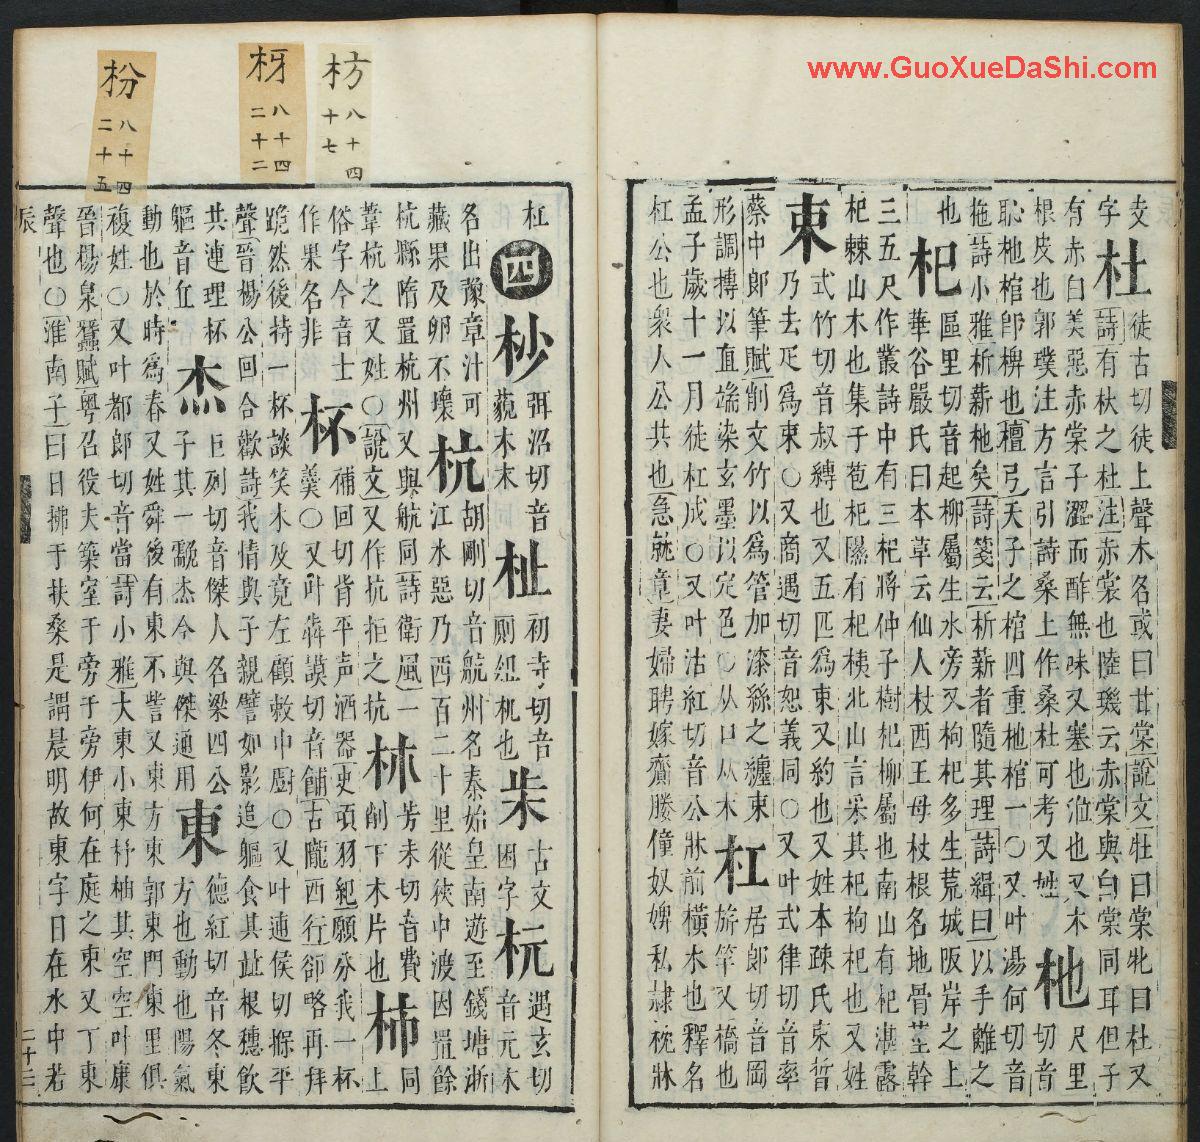 www.GuoXueDaShi.com
枋
八十四
十七
枒
八十四
二十二
枌
八十四
二十五
字
杜
徒古切徒上聲木名或曰甘棠說文牡曰棠牝曰杜又
詩有杕之杜注赤棠也陸璣云赤棠與白棠同耳但子
有赤白美惡赤棠子澀而酢無味又塞也澁也又木
根皮也郭璞注方言引詩桑上作桑杜可考又姓
杝
尺里
切音
恥杝棺卽椑也檀弓天子之棺四重杝棺一〇又叶湯何切音
拖詩小雅析薪杝矣詩箋云析薪者隨其理詩緝曰以手離之
也
杞
區里切音起柳屬生水旁又枸杞多生荒城阪岸之上
華谷嚴氏曰本草云仙人杖西王母杖根名地骨莖幹
三五尺作叢詩中有三杞將仲子樹杞柳屬也南山有杞湛露
杞棘山木也集于苞杞隰有杞桋北山言采其杞枸杞也又姓
束
式竹切音叔縛也又五匹爲束又約也又姓本疎氏束晳
乃去疋爲束〇又商遇切音恕義同〇又叶式律切音率
蔡中郞筆賦削文竹以爲管加漆絲之纏束
形調摶以直端染玄墨以定色〇从口从木
杠
居郞切音岡
旂竿又橋也
孟子歲十一月徒杠成〇又叶沽紅切音公牀前橫木也釋名
杠公也衆人公共也急就章妻婦聘嫁齎媵僮奴婢私隷枕牀
杠
四
杪
弭沼切音
藐木末
杫
初寺切音
廁紐机也
𣏔
古文
困字
杬
遇玄切
音元木
名出豫章汁可
藏果及卵不壞
杭
胡剛切音航州名秦始皇南遊至錢塘浙
江水惡乃西百二十里從狹中渡因置餘
杭縣隋置杭州又與航同詩衛風一
葦杭之又姓〇說文又作抗拒之抗
杮
芳未切音費
削下木片也
柿
同
上
俗字今音士
作果名非
杯
晡回切背平声酒器史項羽紀願分我一杯
羹〇又叶犇謨切音餔古隴西行卻略再拜
跪然後持一杯談笑未及竟左顧敕中廚〇又叶連侯切搙平
聲晉楊公回合歡詩我情與子親譬如影追軀食共並根穗飲
共連理杯
軀音缸
杰
巨列切音傑人名梁四公
子其一䰅杰今與傑通用
東
德紅切音冬東
方也動也陽氣
動也於時爲春又姓舜後有東不訾又東方東郭東門東里俱
複姓〇又叶都郞切音當詩小雅大東小東杼柚其空空叶康
晉楊泉蠶賦粤召役夫築室于旁于旁伊何在庭之東又丁東
聲也〇淮南子曰日拂于扶桑是謂晨明故東字日在木中者
二十三